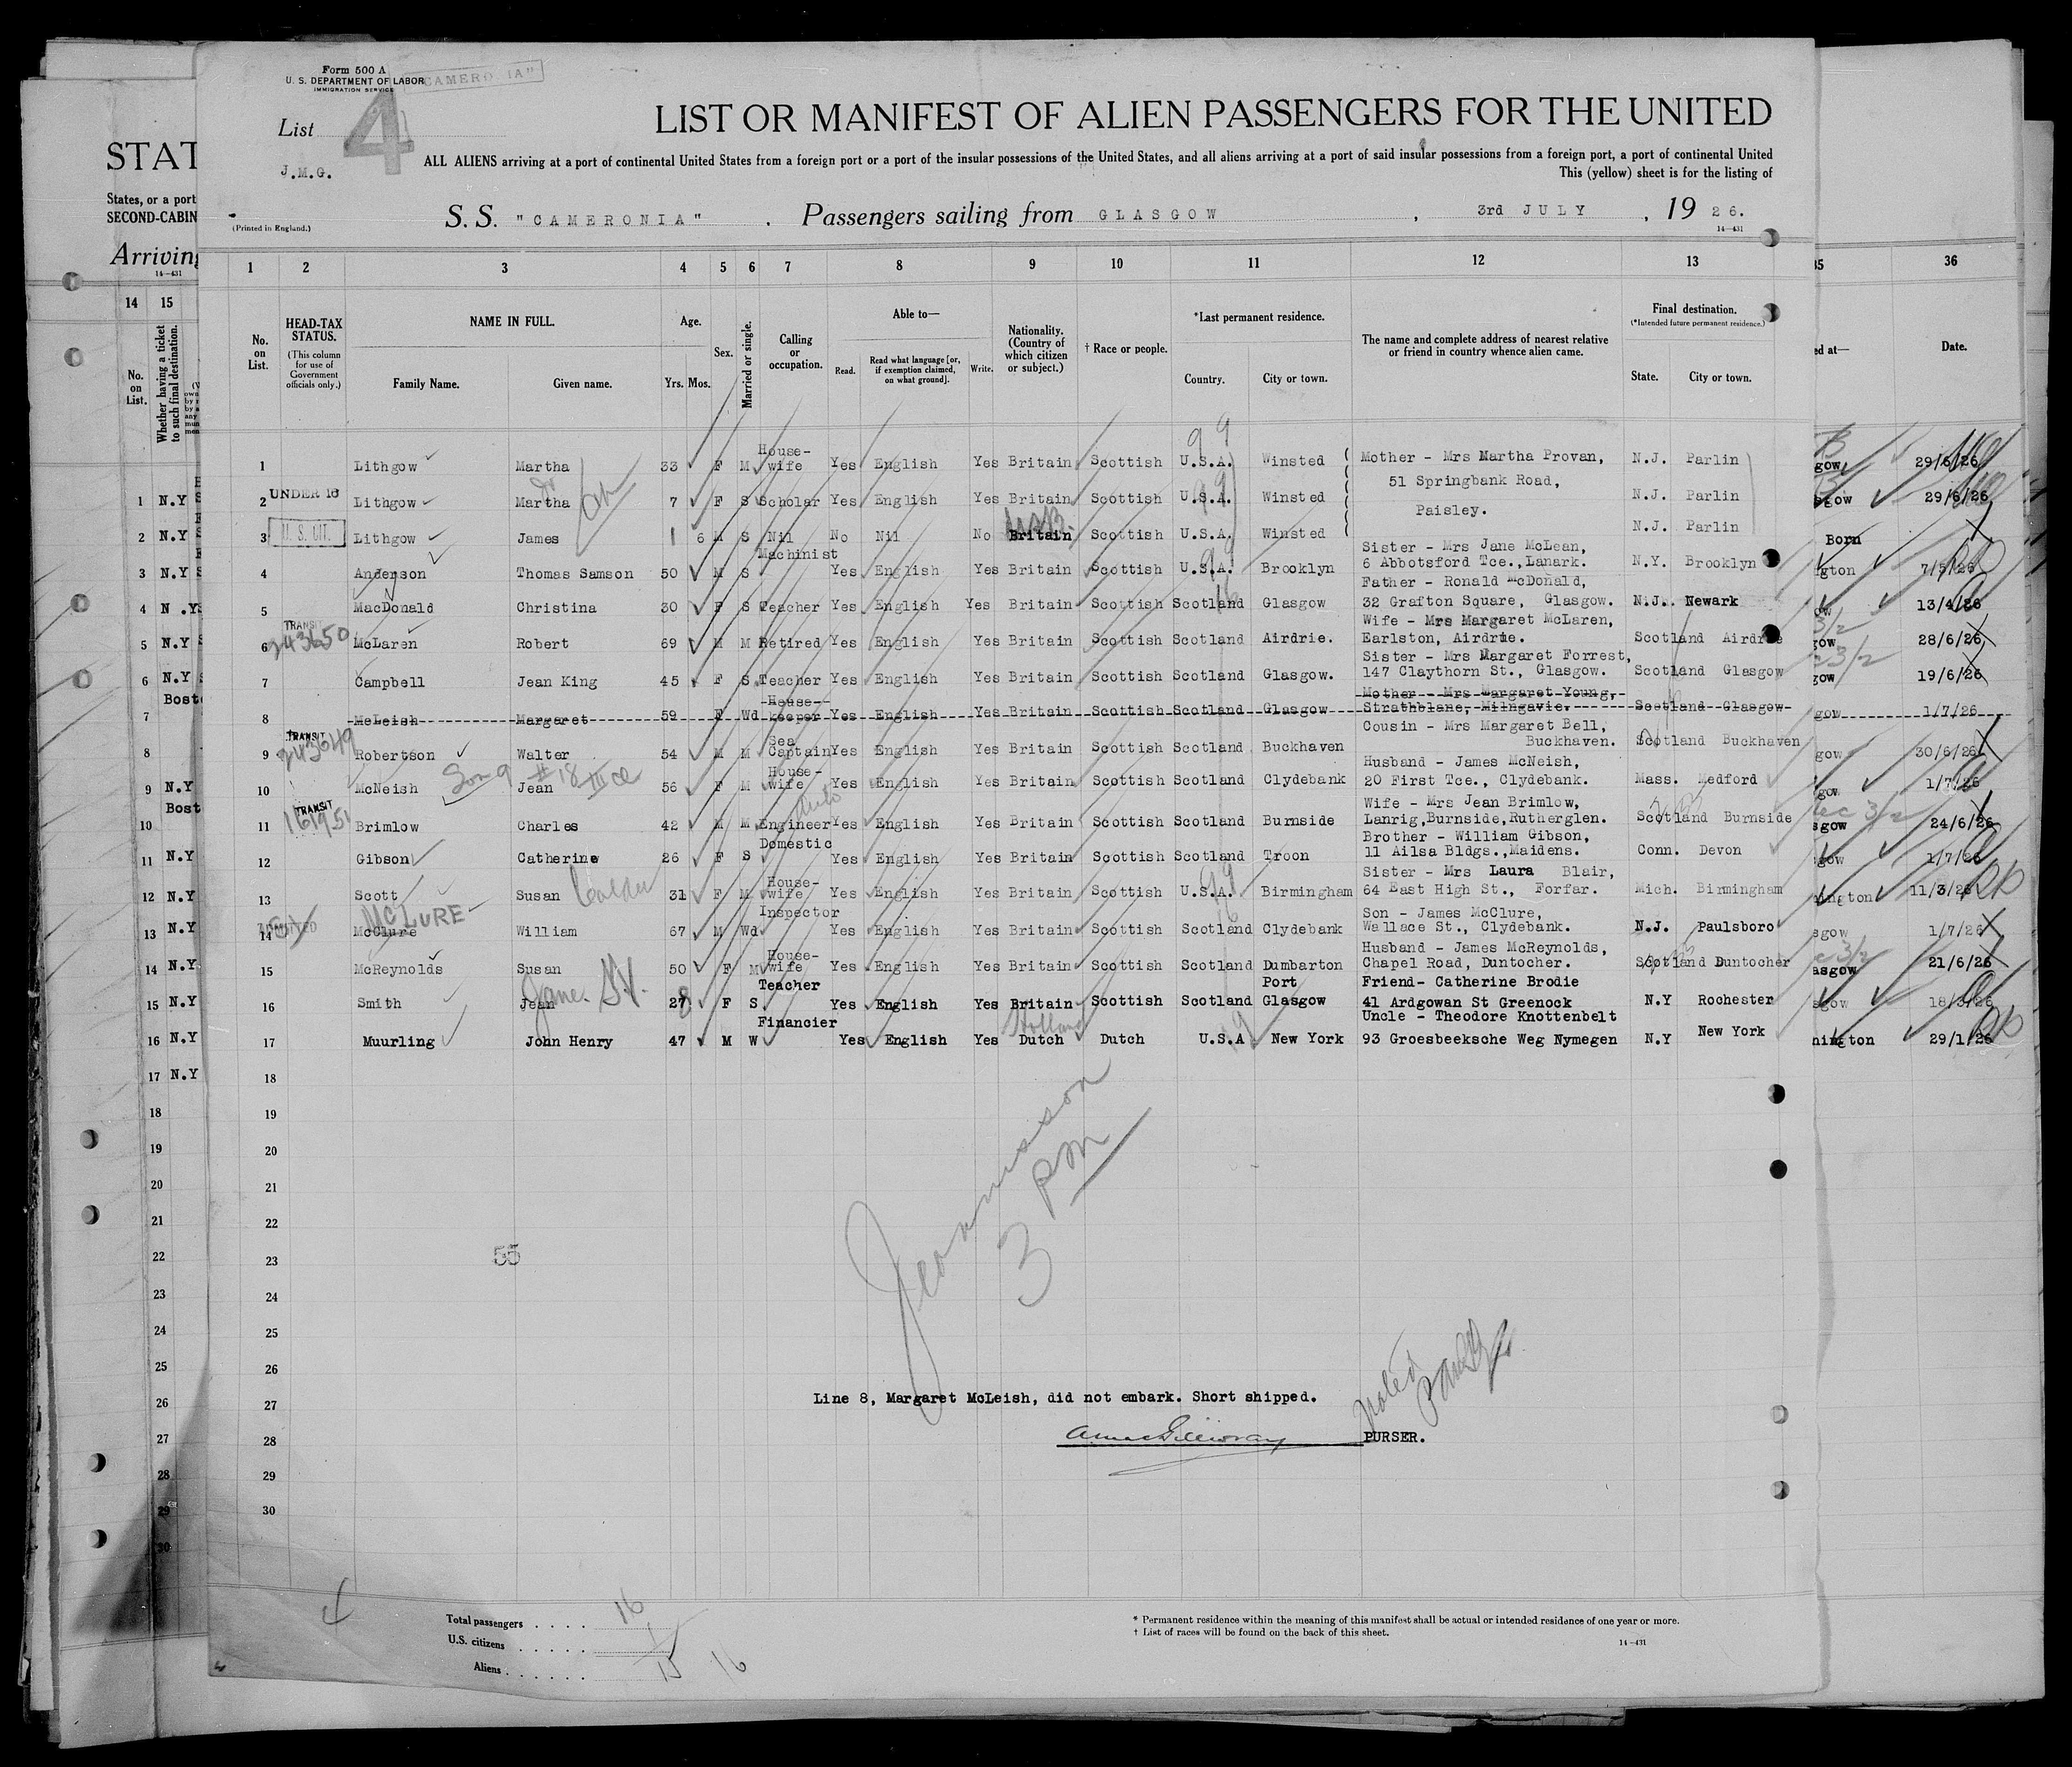 Form 500 A
U. S. DEPARTMENT OF LABOR
IMMIGRATION SERVICE
List 4
J.M.G.
LIST OR MANIFEST OF ALIEN PASSENGERS FOR THE UNITED
ALL ALIENS arriving at a port of continental United States from a foreign port or a port of the insular possessions of the United States, and all aliens arriving at a port of said insular possessions from a foreign port, a port of continental United
This (yellow) sheet is for the listing of
S.S. "CAMERONIA". Passengers sailing from GLASGOW, 3rd JULY, 1926.
(Printed in England.)
14-431
STAT
States, or a port
SECOND-CABIN
Arriving
14-431
1 2 3 4 5 6 7 8 9 10 11 12 13
14 15
35 36
No. on List.
HEAD-TAX STATUS.
(This column for use of Government officials only.)
NAME IN FULL.
Family Name. Given name.
Age.
Yrs. Mos.
Sex.
Married or single.
Calling or occupation.
Able to—
Read. Read what language [or, if exemption claimed, on what ground]. Write.
Nationality. (Country of which citizen or subject.)
† Race or people.
*Last permanent residence.
Country. City or town.
The name and complete address of nearest relative or friend in country whence alien came.
Final destination.
(*Intended future permanent residence.)
State. City or town.
No. on List.
Whether having a ticket to such final destination.
ed at—
Date.
1 Lithgow Martha 33 F M House-wife Yes English Yes Britain Scottish U.S.A. Winsted Mother - Mrs Martha Provan, N.J. Parlin
2 UNDER 16 Lithgow Martha 7 F S Scholar Yes English Yes Britain Scottish U.S.A. Winsted 51 Springbank Road, N.J. Parlin
Paisley.
3 U.S. CIT. Lithgow James 1 6 M S Nil No Nil No Britain Scottish U.S.A. Winsted N.J. Parlin
4 Anderson Thomas Samson 50 M S Machinist Yes English Yes Britain Scottish U.S.A. Brooklyn Sister - Mrs Jane McLean, 6 Abbotsford Tce.,Lanark. N.Y. Brooklyn
5 MacDonald Christina 30 F S Teacher Yes English Yes Britain Scottish Scotland Glasgow Father - Ronald McDonald, 32 Grafton Square, Glasgow. N.J. Newark
6 TRANSIT 243650 McLaren Robert 69 M M Retired Yes English Yes Britain Scottish Scotland Airdrie. Wife - Mrs Margaret McLaren, Earlston, Airdrie. Scotland Airdrie
7 Campbell Jean King 45 F S Teacher Yes English Yes Britain Scottish Scotland Glasgow. Sister - Mrs Margaret Forrest, 147 Claythorn St., Glasgow. Scotland Glasgow
8 McLeish Margaret 59 F Wd House-keeper Yes English Yes Britain Scottish Scotland Glasgow Mother - Mrs Margaret Young, Strathblane, Milngavie. Scotland Glasgow
9 TRANSIT 243649 Robertson Walter 54 M M Sea Captain Yes English Yes Britain Scottish Scotland Buckhaven Cousin - Mrs Margaret Bell, Buckhaven. Scotland Buckhaven
10 McNeish Jean 56 F M House-wife Yes English Yes Britain Scottish Scotland Clydebank Husband - James McNeish, 20 First Tce., Clydebank. Mass. Medford
11 TRANSIT 161951 Brimlow Charles 42 M M Engineer Yes English Yes Britain Scottish Scotland Burnside Wife - Mrs Jean Brimlow, Lanrig,Burnside,Rutherglen. Scotland Burnside
12 Gibson Catherine 26 F S Domestic Yes English Yes Britain Scottish Scotland Troon Brother - William Gibson, 11 Ailsa Bldgs.,Maidens. Conn. Devon
13 Scott Susan Calder 31 F M House-wife Yes English Yes Britain Scottish U.S.A. Birmingham Sister - Mrs Laura Blair, 64 East High St., Forfar. Mich. Birmingham
McLURE
14 McClure William 67 M Wd Inspector Yes English Yes Britain Scottish Scotland Clydebank Son - James McClure, Wallace St., Clydebank. N.J. Paulsboro
15 McReynolds Susan 50 F M House-wife Yes English Yes Britain Scottish Scotland Dumbarton Husband - James McReynolds, Chapel Road, Duntocher. Scotland Duntocher
Jane.
16 Smith Jean 27 F S Teacher Yes English Yes Britain Scottish Scotland Port Glasgow Friend- Catherine Brodie 41 Ardgowan St Greenock N.Y Rochester
17 Muurling John Henry 47 M W Financier Yes English Yes Dutch Dutch U.S.A New York Uncle - Theodore Knottenbelt 93 Groesbeeksche Weg Nymegen N.Y New York
Holland
18
19
20
21
22
23
24
25
26
27
28
29
30
1 N.Y
2 N.Y
3 N.Y
4 N.Y
5 N.Y
6 N.Y
Bost
7
8
9 N.Y
Bost
10
11 N.Y
12 N.Y
13 N.Y
14 N.Y
15 N.Y
16 N.Y
17 N.Y
18
19
20
21
22
23
24
25
26
27
28
29
30
gow 29/6/26
gow 29/6/26
Born
gton 7/5/26
gow 13/4/26
gow 28/6/26
gow 19/6/26
gow 1/7/26
gow 30/6/26
gow 1/7/26
sgow 24/6/26
sgow 1/7/26
ington 11/3/26
sgow 1/7/26
asgow 21/6/26
sgow 18/3/26
nington 29/1/26
3 PM
55
Line 8, Margaret McLeish, did not embark. Short shipped.
PURSER.
Noted
4
Total passengers 16
U.S. citizens 1
Aliens 15 16
* Permanent residence within the meaning of this manifest shall be actual or intended residence of one year or more.
† List of races will be found on the back of this sheet.
14-431